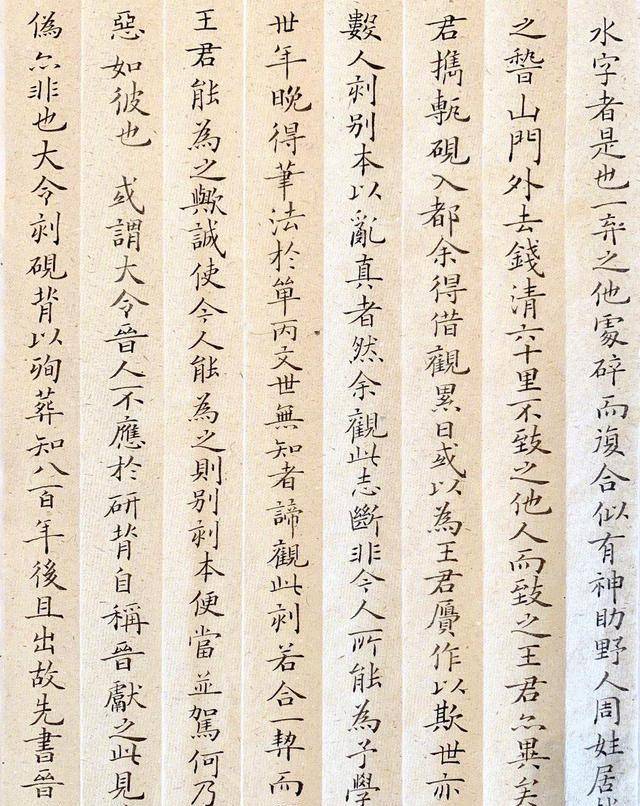 水字者是也一弃之他處碎而復合似有神助野人周姓居
之稽山門外去錢清六十里不致之他人而致之王君亦異矣
君攜甎硯入都余得借觀累日或以為王君贗作以欺世亦
數人刻別本以亂真者然余觀此志斷非今人所能為予學
卅年晚得筆法於單丙文世無知者諦觀此刻若合一契而
王君能為之歟誠使今人能為之則別刻本便當並駕何乃
惡如彼也 或謂大令晉人不應於研背自稱晉獻之此見
偽亦非也大令刻硯背以殉葬知八百年後且出故先書晉